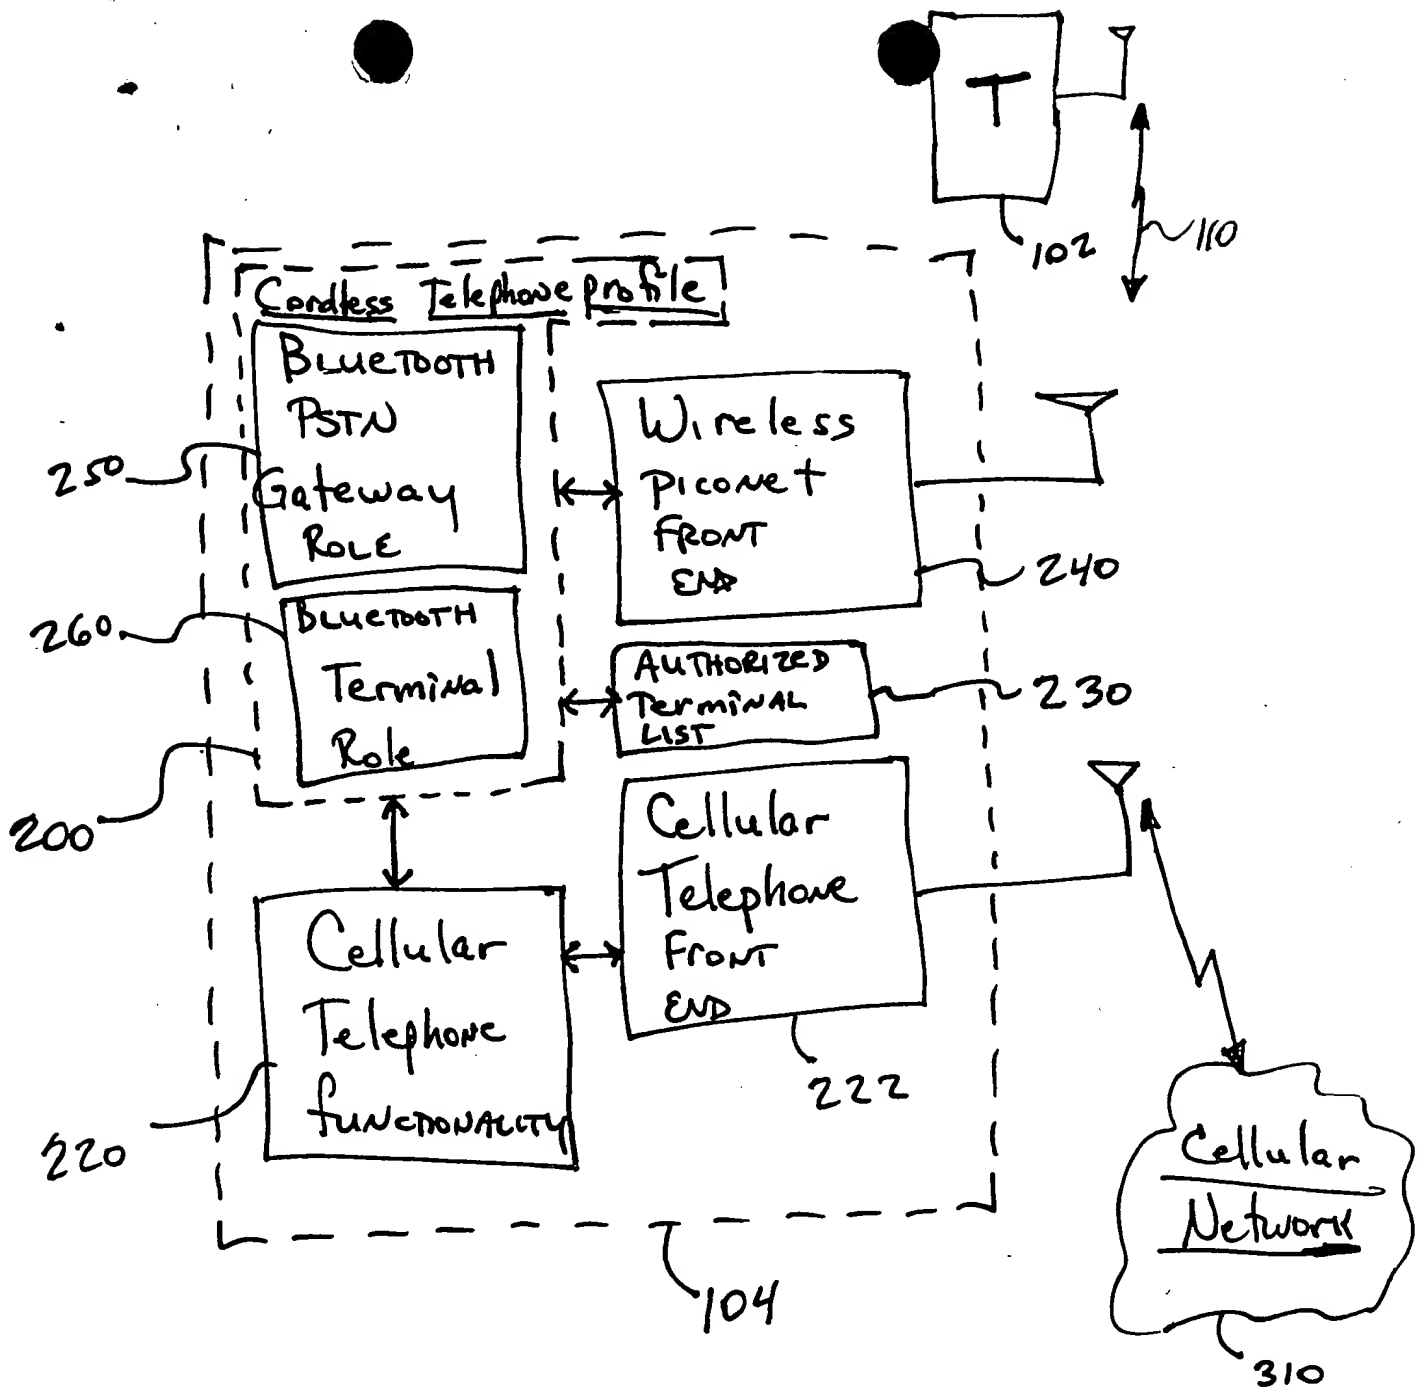 T
102
110
Cordless Telephone profile
BLUETOOTH
PSTN
Gateway
ROLE
250
Wireless
PICONET
FRONT
END
240
BLUETOOTH
Terminal
Role
260
AUTHORIZED
TERMINAL
LIST
230
200
Cellular
Telephone
FRONT
END
222
Cellular
Telephone
FUNCTIONALITY
220
Cellular
Network
104
310